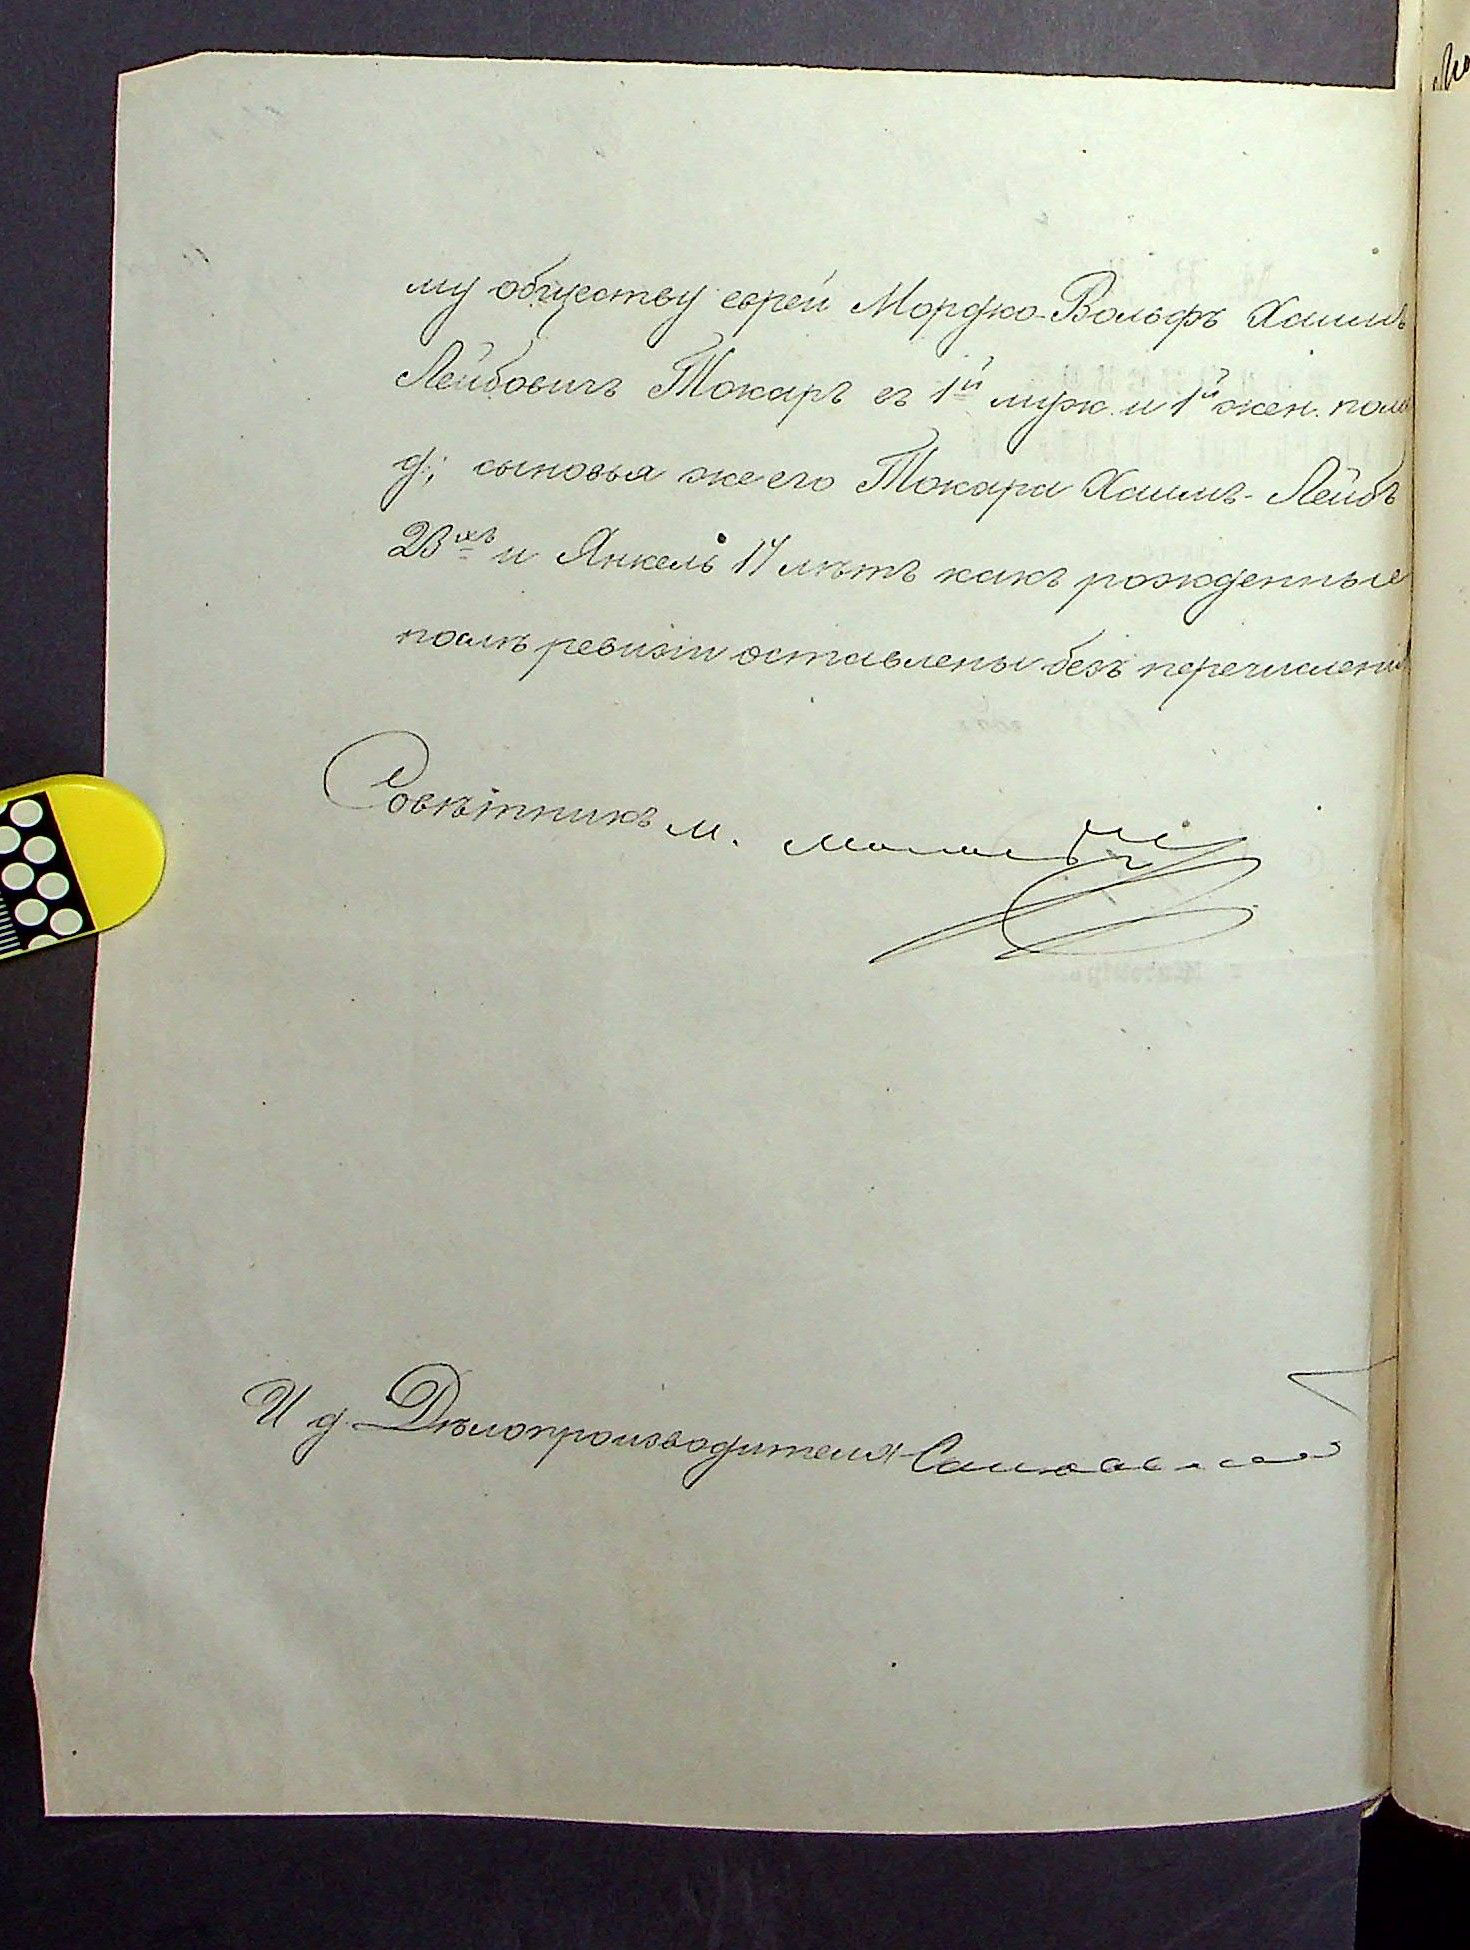 му обществу еврей Мордко-Вольфъ Хаимъ
Лейбовичъ Токаръ съ 1й муж. и 1й жен. пола
д; сыновья же его Токара Хаимъ-Лейбъ
23хъ и Янкель 17 лѣтъ какъ рожденные
послѣ ревизіи оставлены безъ перечисленія
Совѣтникъ М.
И д. Дѣлопроизводителя